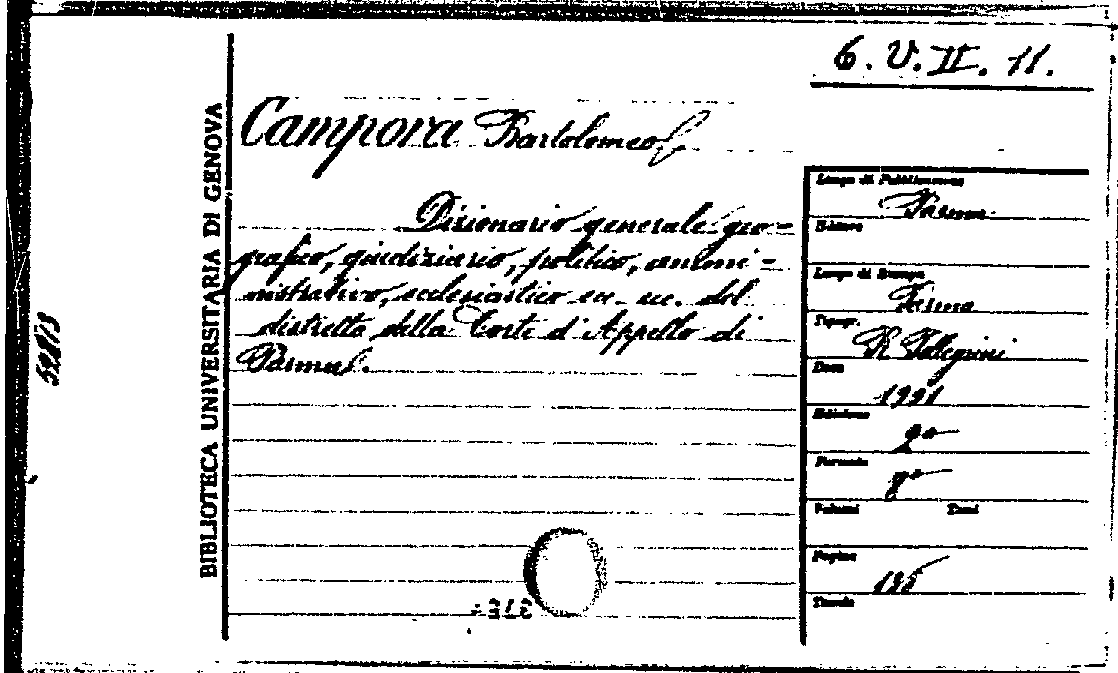 6. V. II. 11.
BIBLIOTECA UNIVERSITARIA DI GENOVA
Campora Bartolomeo
Dizionario generale geo-
grafico, giudiziario, politico, ammi-
nistrativo, ecclesiastico ec. ec. del
distretto della Corte d'Appello di
Parma.
Luogo di Pubblicazione
Parma
Editore
Luogo di Stampa
Parma
Tipogr.
Pellegrini
Data
Edizione
2a
Formato
8°
Volumi Tomi
Pagine
Tavole